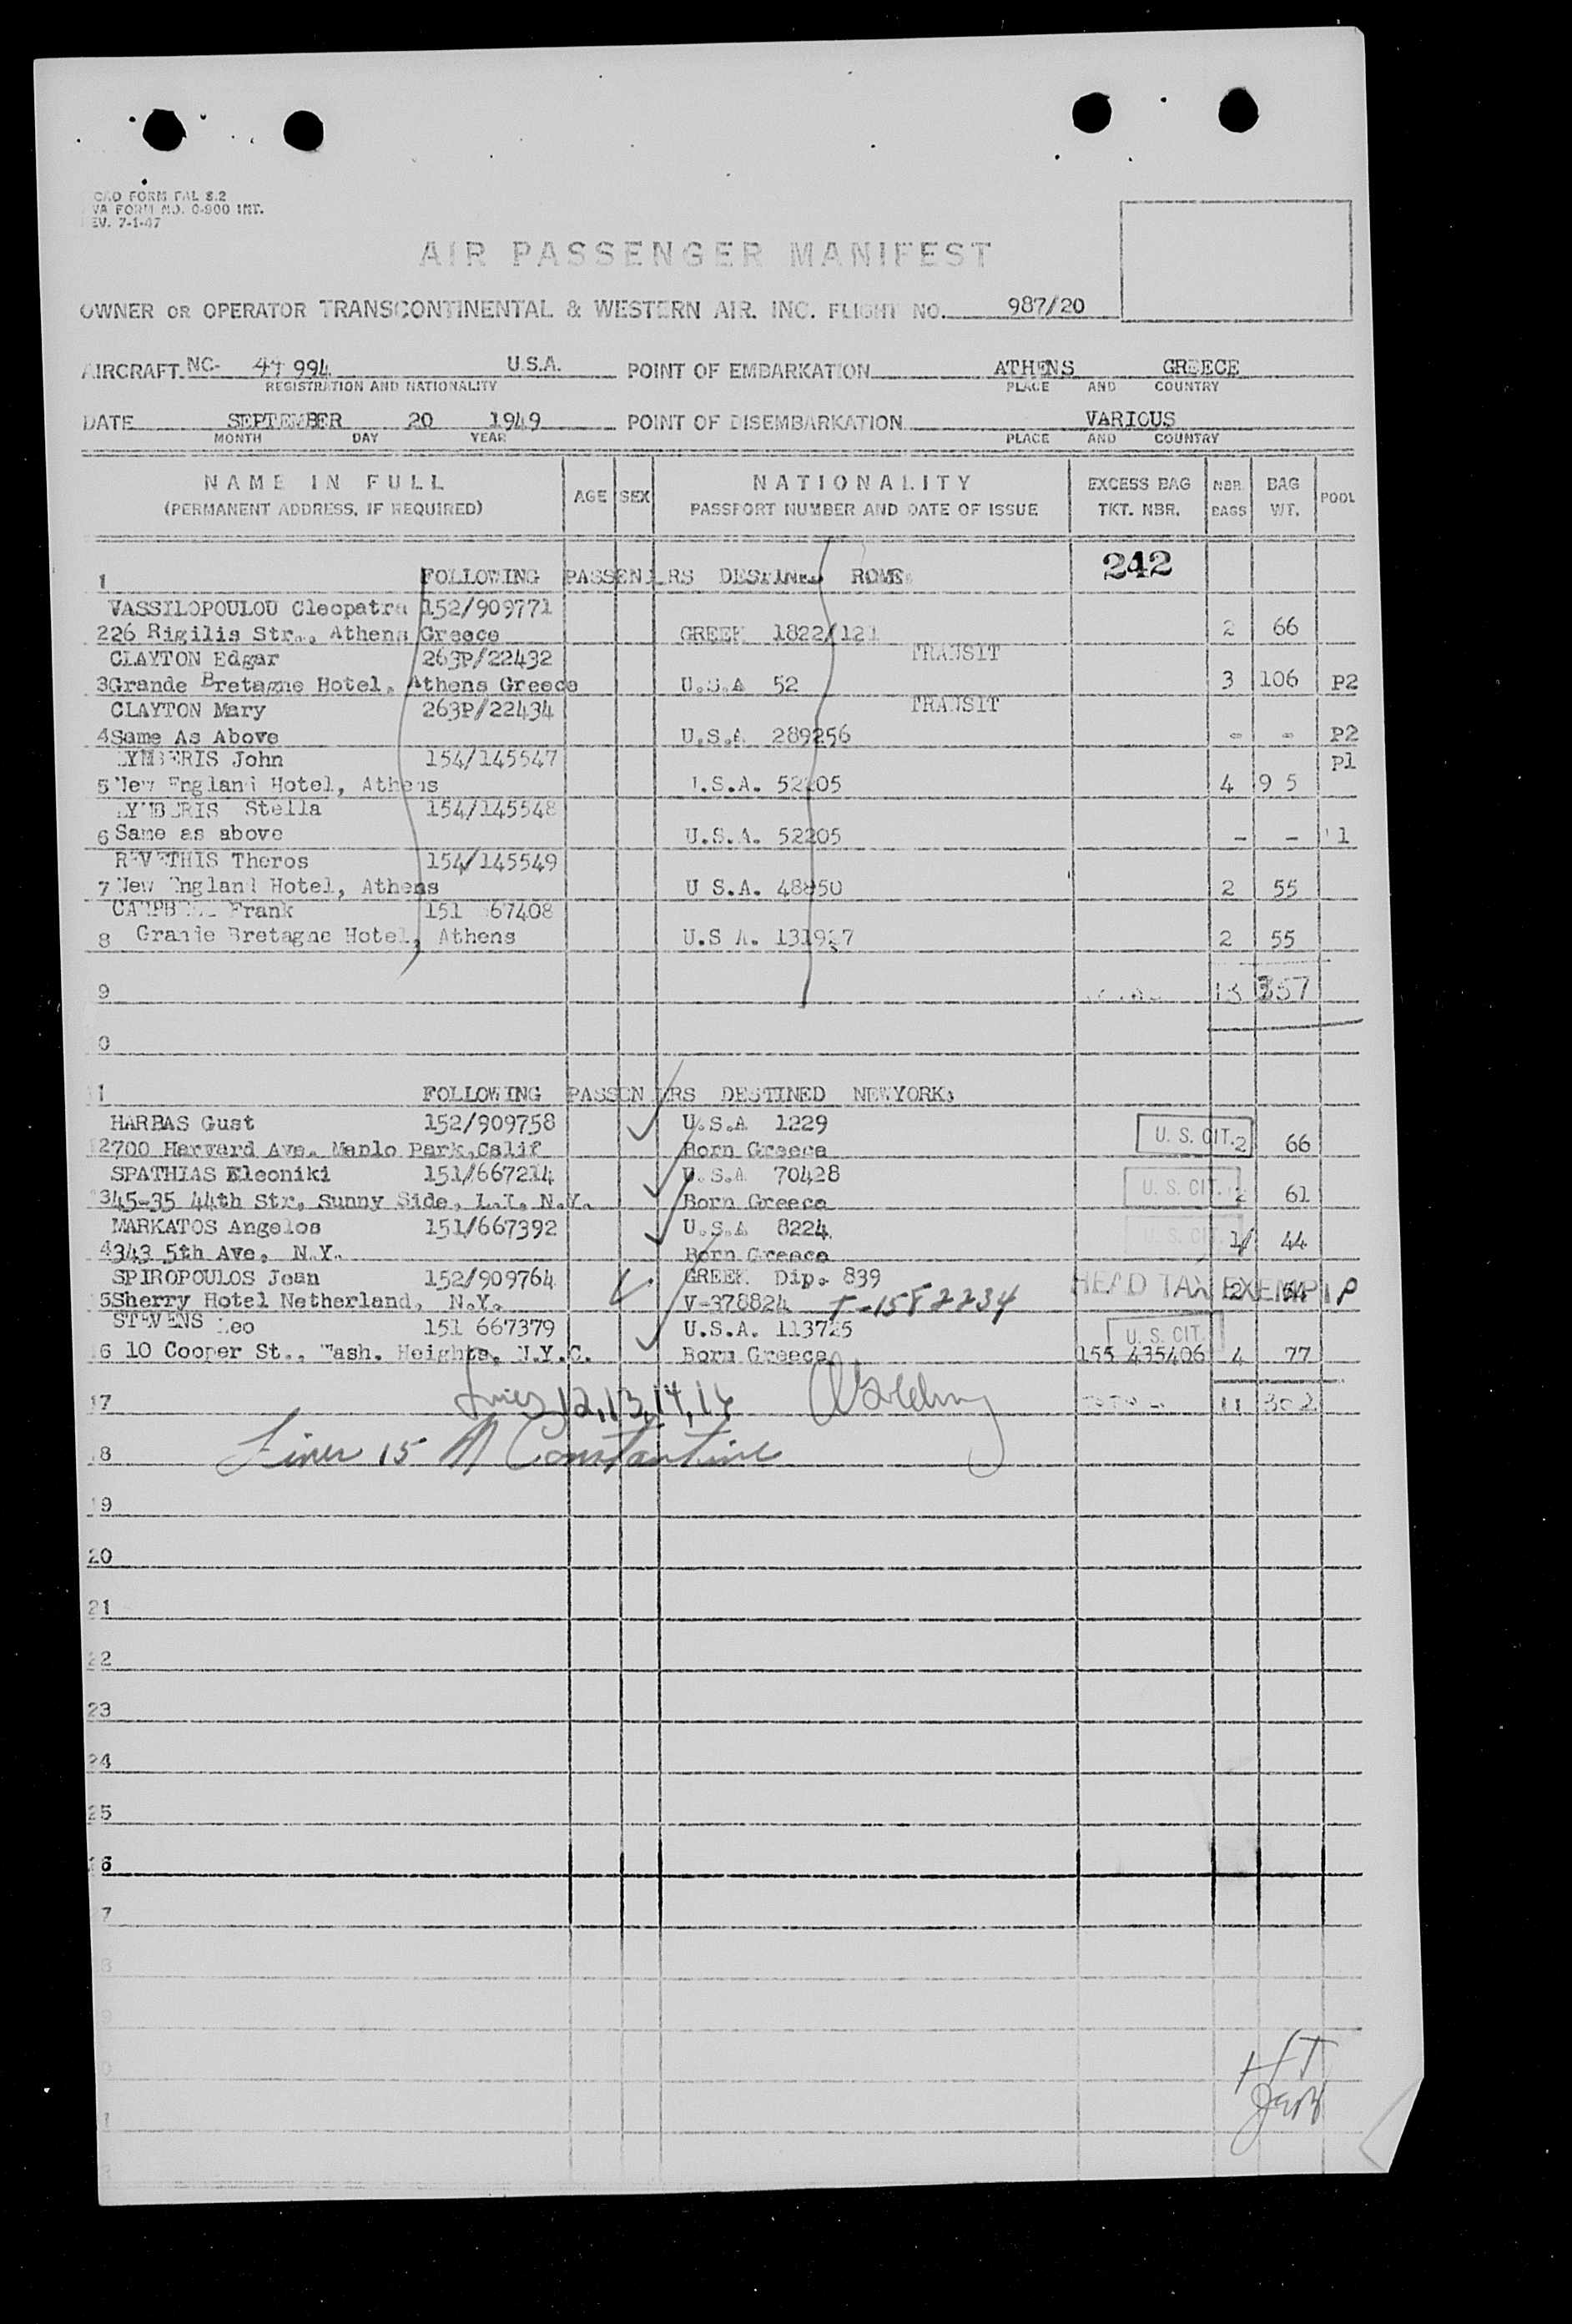 CAO FORM FAL 8.2
WA FORM NO. 0-900 INT.
REV. 7-1-47
AIR PASSENGER MANIFEST
OWNER OR OPERATOR TRANSCONTINENTAL & WESTERN AIR. INC. FLIGHT NO. 987/20
AIRCRAFT NC- 994 U.S.A. POINT OF EMBARKATION ATHENS GREECE
REGISTRATION AND NATIONALITY PLACE AND COUNTRY
DATE SEPTEMBER 20 1949 POINT OF DISEMBARKATION VARIOUS
MONTH DAY YEAR PLACE AND COUNTRY
NAME IN FULL AGE SEX NATIONALITY EXCESS BAG NBR. BAG POOL
(PERMANENT ADDRESS, IF REQUIRED) PASSPORT NUMBER AND DATE OF ISSUE TKT. NBR. BAGS WT.
242
1 FOLLOWING ROME
VASSILOPOULOU Cleopatra 152/909771
226 Rigilis Str., Athens Greece GREEK 1822/121 2 66
CLAYTON Edgar 263P/22432 TRANSIT
3 Grande Bretagne Hotel, Athens Greece U.S.A 52 3 106 P2
CLAYTON Mary 263P/22434 TRANSIT
4 Same As Above U.S.A 289256 - - P2
LYMBERIS John 154/145547 P1
5 New England Hotel, Athens U.S.A. 52205 4 95
LYMBERIS Stella 154/145548
6 Same as above U.S.A. 52205 - - 1
REVETHIS Theros 154/145549
7 New England Hotel, Athens U S.A. 48850 2 55
Frank 151 667408
8 Grande Bretagne Hotel, Athens U.S A. 2 55
9 13 357
0
1 FOLLOWING DESTINED NEWYORK
HARBAS Gust 152/909758 U.S.A 1229
12 700 Harvard Ave. Menlo Park, Calif Born Greece U. S. CIT. 2 66
SPATHIAS Eleoniki 151/667214 U.S.A 70428
3 45-35 44th Str, Sunny Side, L.I. N.Y. Born Greece U. S. CIT. 2 61
MARKATOS Angelos 151/667392 U.S.A 8224
4 343 5th Ave, N.Y. Born Greece U. S. CIT 1 44
SPIROPOULOS Jean 152/909764 GREEK Dip. 839
5 Sherry Hotel Netherland, N.Y. V-378824 T-1582234 HEAD TAX EXEMPT 2 54 P
STEVENS Leo 151 667379 U.S.A. 113725
6 10 Cooper St., Wash. Heights, N.Y.C. Born Greece U. S. CIT. 155 435406 4 77
17 Lines 12, 13, 14, 16 11 302
18 Liner 15 A Constantine
19
20
21
22
23
24
25
26
7
8
9
0
1
HT